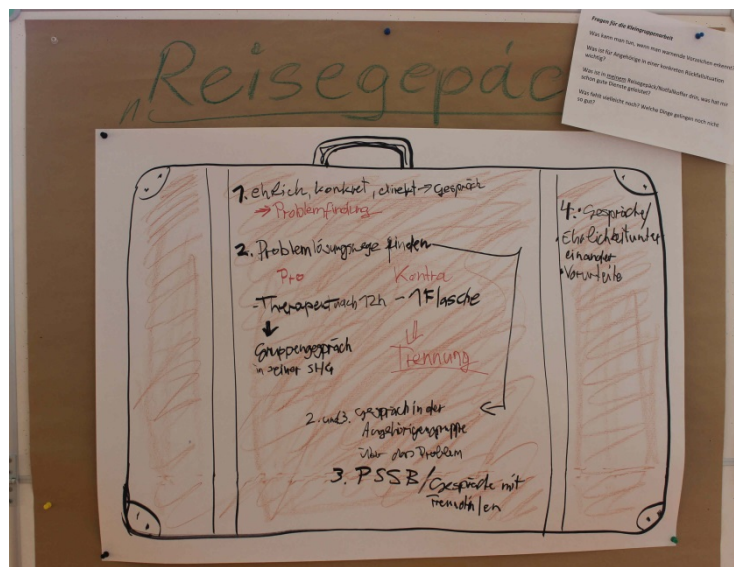 "Reisegepäc
Fragen für die Kleingruppenarbeit
Was kann man tun, wenn man warnende Vorzeichen erkennt?
Was ist für Angehörige in einer konkreten Rückfallsituation
wichtig?
Was ist in meinem Reisegepäck/Notfallkoffer drin, was hat mir
schon gute Dienste geleistet?
Was fehlt vielleicht noch? Welche Dinge gelingen noch nicht
so gut?
1. ehrlich, konkret, direkt → Gespräch
→ Problemfindung
2. Problemlösungswege finden
Pro Kontra
- Therapeut nach 72h - 1 Flasche
Gruppengespräch
in seiner SHG
Trennung
2. und 3. Gespräch in der
Angehörigengruppe
über das Problem
3. PSSB/Gespräche mit
Freunden
4. • Gespräche/
Ehrlichkeit unter
einander
• Vorurteile